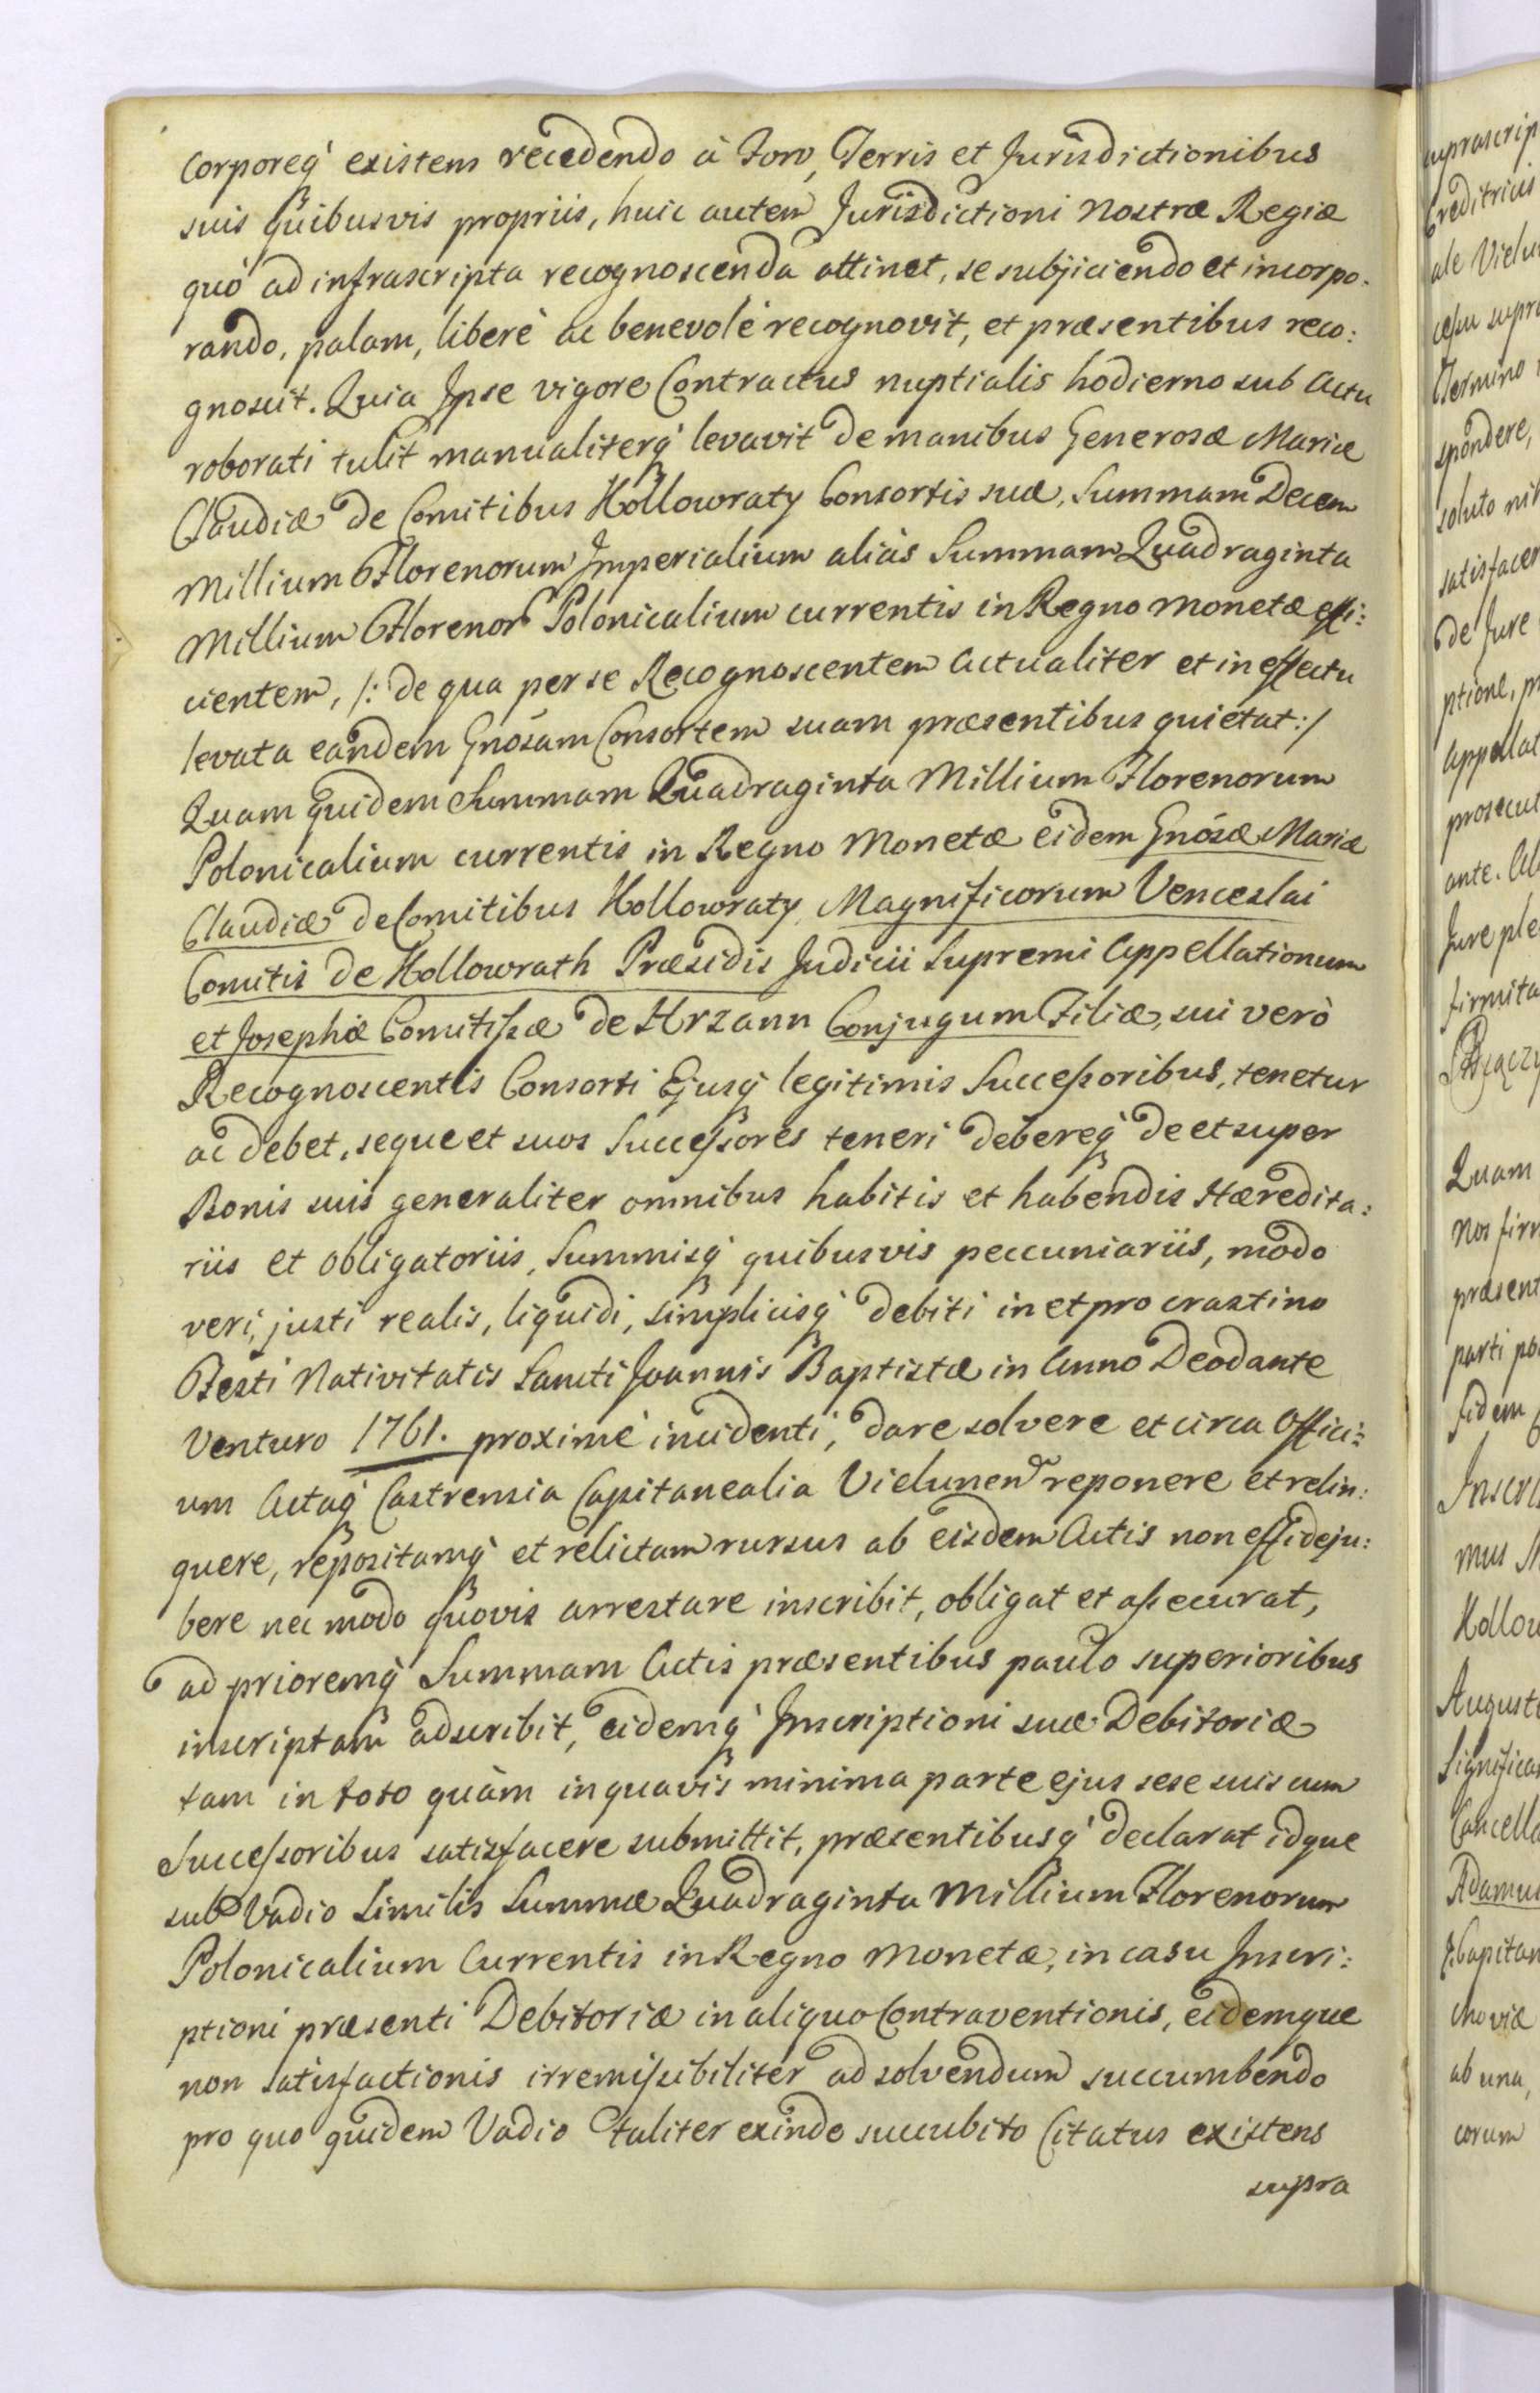 corporeq́ existens recedendo à Foro, Terris et Jurisdictionibus
suis quibusvis propriis, huic autem Jurisdictioni Nostræ Regiæ
quò ad infrascripta recognoscenda attinet, se subjiciendo et incorpo:
rando, palam, liberè ac benevolè recognovit, et præsentibus reco:
gnoscit. Quia Ipse vigore Contractus nuptialis hodierno sub Actu
roborati tulit manualiterq́ levavit de manibus Generosæ Mariæ
Claudiæ de Comitibus Hollowraty Consortis suæ, Summam Decem
Millium Florenorum Imperialium aliàs Summam Quadraginta
Millium Florenor Polonicalium currentis in Regno Monetæ effi:
cientem, /: de qua per se Recognoscentem Actualiter et in effectu
levata eandem Gnosam Consortem suam præsentibus quietat :/
Quam quidem Summam Quadraginta Millium Florenorum
Polonicalium currentis in Regno Monetæ eidem Gnosæ Mariæ
Claudiæ de Comitibus Hollowraty, Magnificorum Venceslai
Comitis de Hollowrath Præsidis Judicii Supremi Appellationum
et Josephæ Comitissæ de Hrzann Conjugum Filiæ, sui verò
Recognoscentis Consorti Ejusq́ legitimis Successoribus, tenetur
ac debet, seque et suos Successores teneri debereq́ de et super
Bonis suis generaliter omnibus habitis et habendis Hæredita:
riis et obligatoriis, Summisq́ quibusvis peccuniariis, modo
veri, justi realis, liquidi, simplicisq́ debiti in et pro crastino
Festi Nativitatis Sancti Joannis Baptistæ in Anno Deo dante
Venturo 1761. proximè incidenti, dare solvere et circa Offici:
um Actaq́ Castrensia Capitanealia Vielunen reponere et relin:
quere, repositamq́ et relictam rursus ab eisdem Actis non effideju:
bere nec modo quovis arrestare inscribit, obligat et assecurat,
ad prioremq́ Summam Actis præsentibus paulo superioribus
inscriptam adscribit, eidemq́ Inscriptioni suæ Debitoriæ
tam in toto quàm in quavis minima parte ejus sese suis cum
Successoribus satisfacere submittit, præsentibusq́ declarat idque
sub Vadio Similis Summæ Quadraginta Millium Florenorum
Polonicalium Currentis in Regno Monetæ, in casu Inscri:
ptioni præsenti Debitoriæ in aliquo Contraventionis, eidemque
non satisfactionis irremissibiliter ad solvendum succumbendo
pro quo quidem Vadio taliter exinde succubito Citatus existens
supra